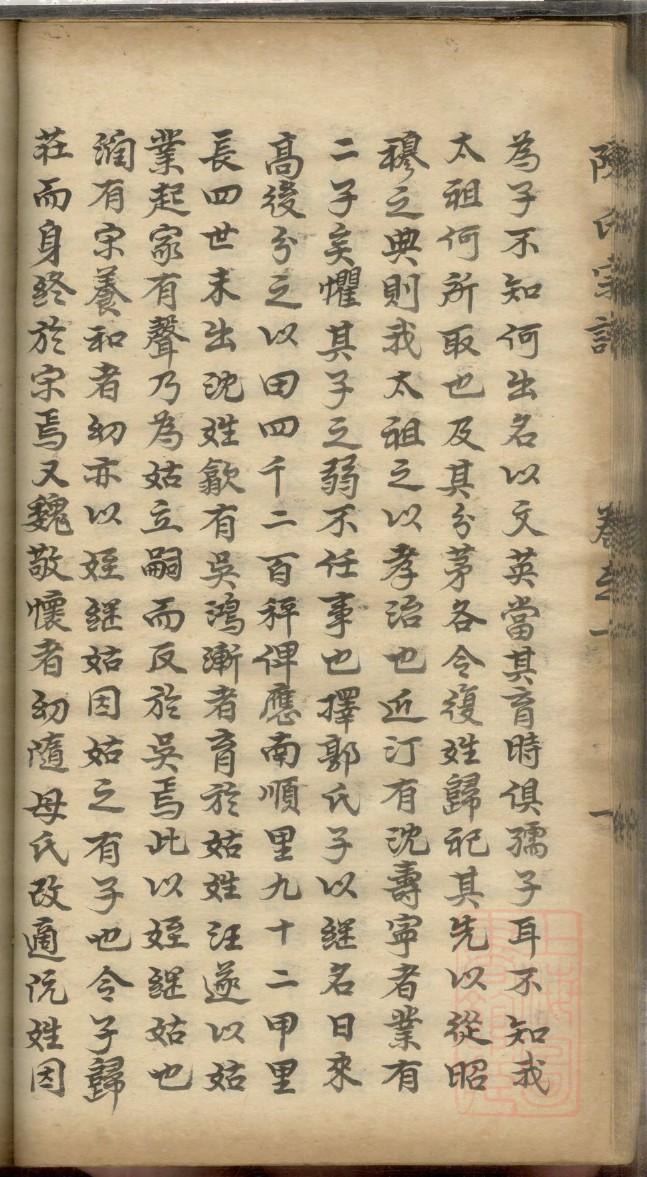 為子不知何出名以文英當其育時俱孺子耳不知我
太祖何所取也及其分茅各令復姓歸祀其先以從昭
穆之典則我太祖之以孝治也近汀有沈壽寧者業有
二子矣懼其子之弱不任事也擇郭氏子以継名日來
高後分之以田四千二百秤俾應南順里九十二甲里
長四世未出沈姓歙有吳鴻漸者育於姑姓汪遂以姑
業起家有聲乃為姑立嗣而反於吳焉此以姪継姑也
有宋養和者幼亦以姪継姑因姑之有子也令子歸
莊而身終於宋焉又魏敬懷者幼隨母氏改適阮姓因